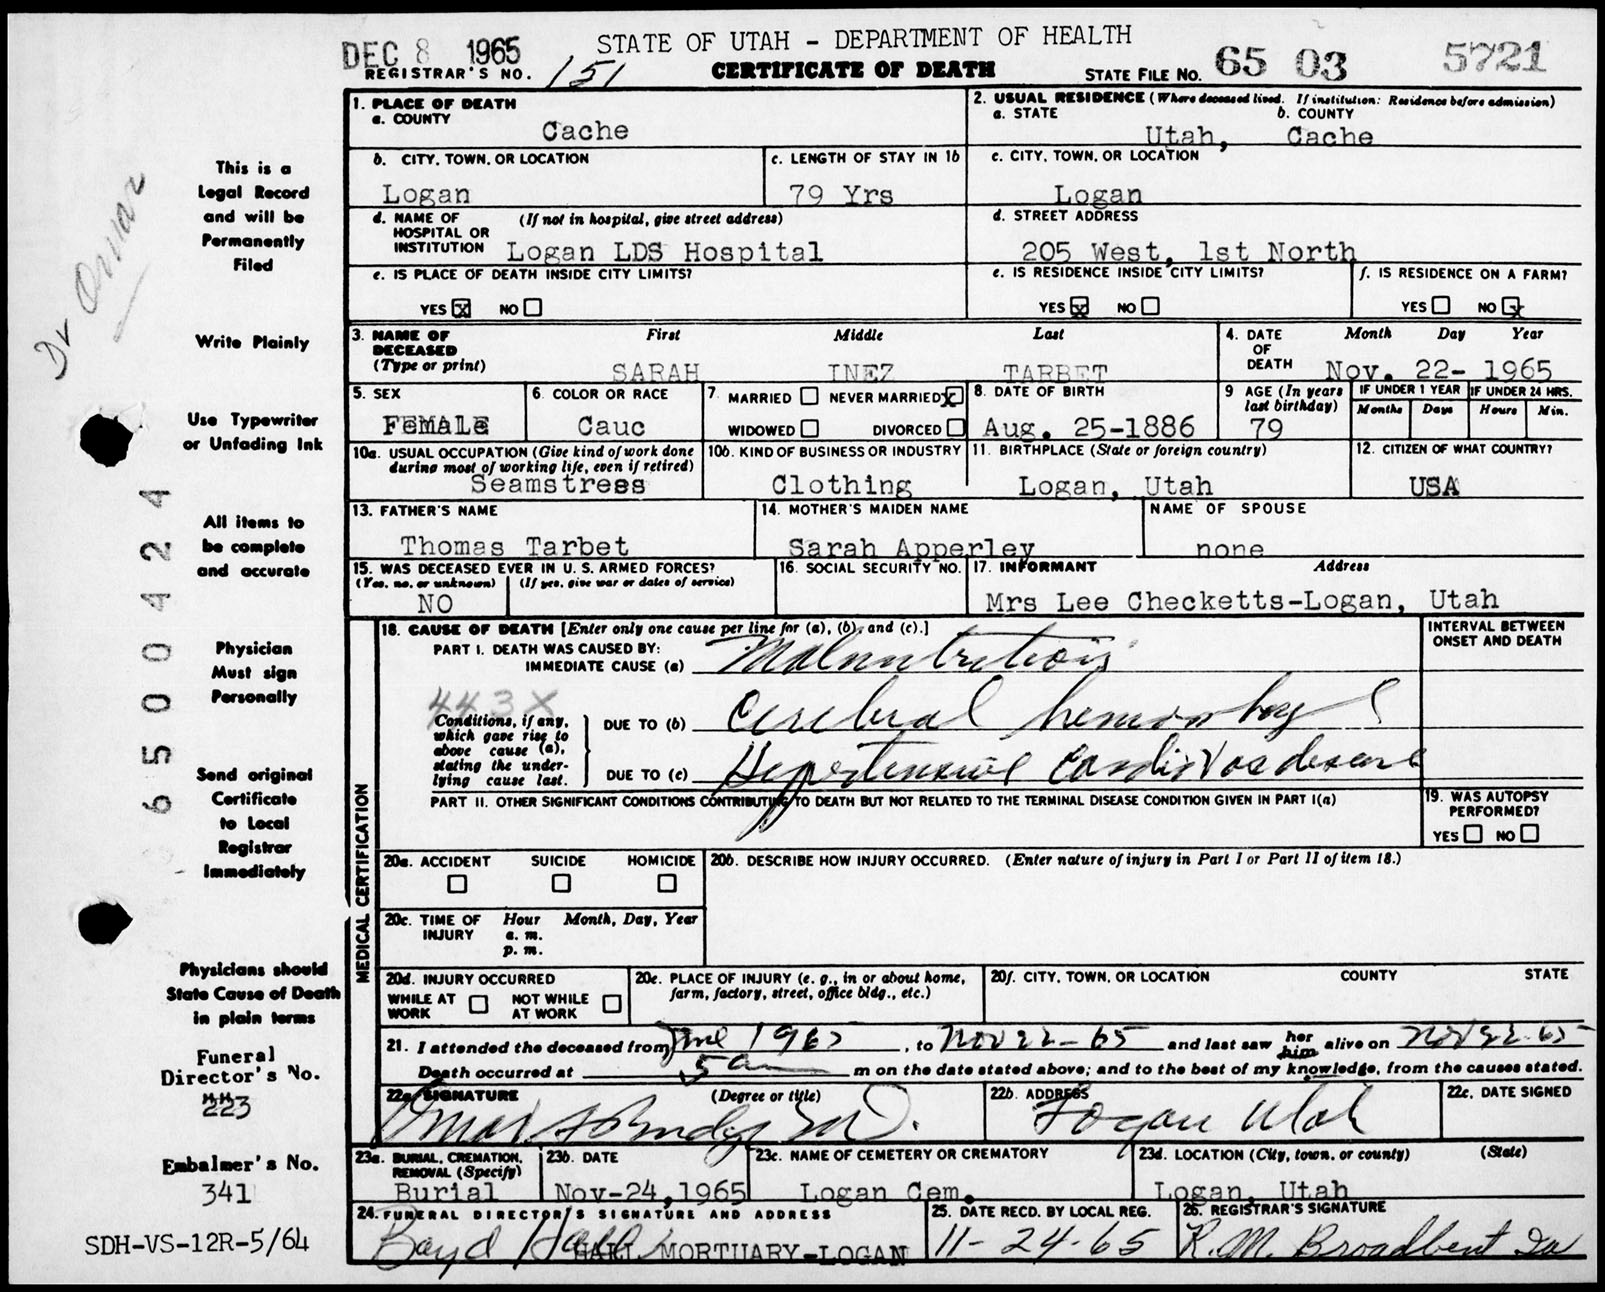 DEC 8 1965
STATE OF UTAH - DEPARTMENT OF HEALTH
REGISTRAR'S NO. 151
CERTIFICATE OF DEATH
STATE FILE NO. 65 03 5721
1. PLACE OF DEATH
a. COUNTY
Cache
2. USUAL RESIDENCE (Where deceased lived. If institution: Residence before admission)
a. STATE b. COUNTY
Utah, Cache
b. CITY, TOWN, OR LOCATION
Logan
c. LENGTH OF STAY IN 1b
79 Yrs
c. CITY, TOWN, OR LOCATION
Logan
d. NAME OF HOSPITAL OR INSTITUTION (If not in hospital, give street address)
Logan LDS Hospital
d. STREET ADDRESS
205 West, 1st North
e. IS PLACE OF DEATH INSIDE CITY LIMITS?
YES X NO
e. IS RESIDENCE INSIDE CITY LIMITS?
YES X NO
f. IS RESIDENCE ON A FARM?
YES NO X
3. NAME OF DECEASED (Type or print) First Middle Last
SARAH INEZ TARBET
4. DATE OF DEATH Month Day Year
Nov. 22- 1965
5. SEX
FEMALE
6. COLOR OR RACE
Cauc
7. MARRIED NEVER MARRIED X
WIDOWED DIVORCED
8. DATE OF BIRTH
Aug. 25-1886
9 AGE (In years last birthday)
79
IF UNDER 1 YEAR IF UNDER 24 HRS.
Months Days Hours Min.
10a. USUAL OCCUPATION (Give kind of work done during most of working life, even if retired)
Seamstress
10b. KIND OF BUSINESS OR INDUSTRY
Clothing
11. BIRTHPLACE (State or foreign country)
Logan, Utah
12. CITIZEN OF WHAT COUNTRY?
USA
13. FATHER'S NAME
Thomas Tarbet
14. MOTHER'S MAIDEN NAME
Sarah Apperley
NAME OF SPOUSE
none
15. WAS DECEASED EVER IN U. S. ARMED FORCES?
(Yes, no, or unknown) (If yes, give war or dates of service)
NO
16. SOCIAL SECURITY NO.
17. INFORMANT Address
Mrs Lee Checketts-Logan, Utah
MEDICAL CERTIFICATION
18. CAUSE OF DEATH [Enter only one cause per line for (a), (b), and (c).]
PART I. DEATH WAS CAUSED BY:
IMMEDIATE CAUSE (a) Malnutrition
443X
Conditions, if any, which gave rise to above cause (a), stating the underlying cause last.
DUE TO (b) Cerebral hemorrhage
DUE TO (c) Hypertensive Cardio Vas disease
INTERVAL BETWEEN ONSET AND DEATH
PART II. OTHER SIGNIFICANT CONDITIONS CONTRIBUTING TO DEATH BUT NOT RELATED TO THE TERMINAL DISEASE CONDITION GIVEN IN PART I(a)
19. WAS AUTOPSY PERFORMED?
YES NO
20a. ACCIDENT SUICIDE HOMICIDE
20b. DESCRIBE HOW INJURY OCCURRED. (Enter nature of injury in Part I or Part II of item 18.)
20c. TIME OF INJURY Hour Month, Day, Year
a. m.
p. m.
20d. INJURY OCCURRED
WHILE AT WORK NOT WHILE AT WORK
20e. PLACE OF INJURY (e. g., in or about home, farm, factory, street, office bldg., etc.)
20f. CITY, TOWN, OR LOCATION COUNTY STATE
21. I attended the deceased from June 1965, to Nov 22-65 and last saw her him alive on Nov 22-65
Death occurred at 5 am m on the date stated above; and to the best of my knowledge, from the causes stated.
22a. SIGNATURE (Degree or title)
Omar S Budge M.D.
22b. ADDRESS
Logan Utah
22c. DATE SIGNED
23a. BURIAL, CREMATION, REMOVAL (Specify)
Burial
23b. DATE
Nov-24, 1965
23c. NAME OF CEMETERY OR CREMATORY
Logan Cem.
23d. LOCATION (City, town, or county) (State)
Logan, Utah
24. FUNERAL DIRECTOR'S SIGNATURE AND ADDRESS
Boyd Hall
HALL MORTUARY-LOGAN
25. DATE RECD. BY LOCAL REG.
11-24-65
26. REGISTRAR'S SIGNATURE
R. M. Broadbent
Dr Omar
This is a
Legal Record
and will be
Permanently
Filed
Write Plainly
Use Typewriter
or Unfading Ink
All items to
be complete
and accurate
Physician
Must sign
Personally
Send original
Certificate
to Local
Registrar
Immediately
Physicians should
State Cause of Death
in plain terms
Funeral
Director's No.
223
Embalmer's No.
341
SDH-VS-12R-5/64
6500424